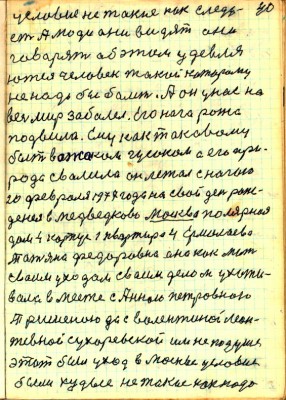 40
условие не такие как следу-
ст А люди они видят они
гаварят об этом удевля
ются человек такой каторому
не нада бы болит. А он у нас на
вех мир забалел. Его нага рожа
подвила. Ему как таковому
быть важном чусоком а его при-
рода свалила он лежал с нагою
20 февраля 1977 года на свой ден раж-
дения в Медведково Москва полярная
дом 4 корпус 1 квартира 4 Ермолаева
Татяна федоровна она как мать
сваим уходам сваим делом ухажи-
вала в месте с Анною петровною
да с валентиной леон-
тевной сухаревской им не подуше
этот был уход в Москве условие
были худые не такие как нада